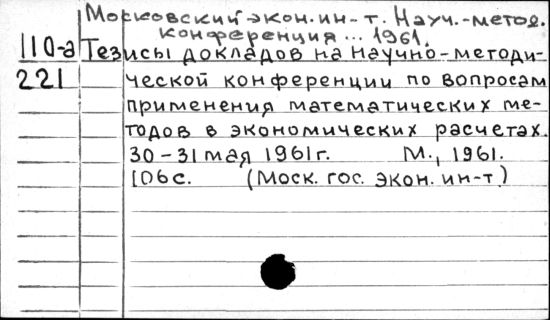 Московский экон. ин-т. Науч.-метод.
конференция ... 1961.
110-а Тезисы докладов на научно-методи-
221 ческой конференции по вопросам
применения математических ме-
тодов в экономических расчетах.
30-31 мая 1961г. М., 1961.
106с. (Моск. гос. экон. ин-т)